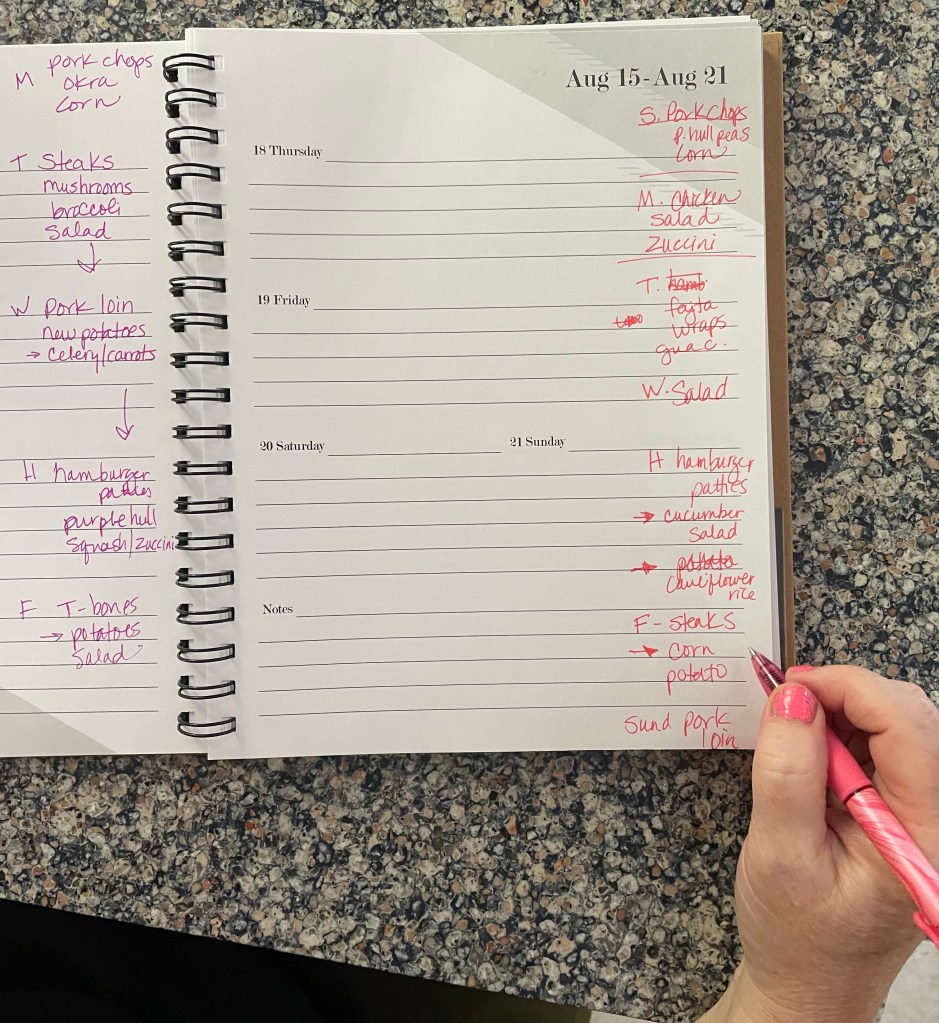 M pork chops
okra
corn
T Steaks
mushrooms
broccoli
Salad
W pork loin
new potatoes
→ Celery/carrots
H hamburger
patties
purple hull
Squash/Zuccini
F T-bones
→ potatoes
Salad
Aug 15-Aug 21
S. Pork Chops
p. hull peas
Corn
18 Thursday
M. Chicken
Salad
Zuccini
T. hamb
fajta
wraps
guac.
19 Friday
W. Salad
20 Saturday
21 Sunday
H hamburger
patties
→ cucumber
Salad
→ potato
Cauliflower
rice
Notes
F - Steaks
→ Corn
potato
Sund pork
loin